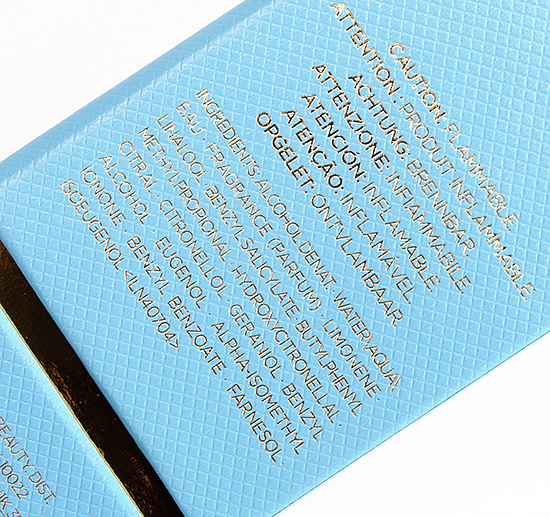 CAUTION: FLAMMABLE.
ATTENTION : PRODUIT INFLAMMABLE.
ACHTUNG: BRENNBAR.
ATTENZIONE: INFIAMMABILE.
ATENCIÓN: INFLAMABLE.
ATENÇÃO: INFLAMÁVEL.
OPGELET: ONTVLAMBAAR.
INGREDIENTS: ALCOHOL DENAT· WATER\AQUA\
EAU · FRAGRANCE (PARFUM) · LIMONENE·
LINALOOL· BENZYL SALICYLATE· BUTYLPHENYL
METHYLPROPIONAL · HYDROXYCITRONELLAL ·
CITRAL · CITRONELLOL · GERANIOL · BENZYL
ALCOHOL · EUGENOL · ALPHA-ISOMETHYL
IONONE · BENZYL BENZOATE · FARNESOL ·
ISOEUGENOL <ILN40704>
BEAUTY, DIST.
10022
UK,